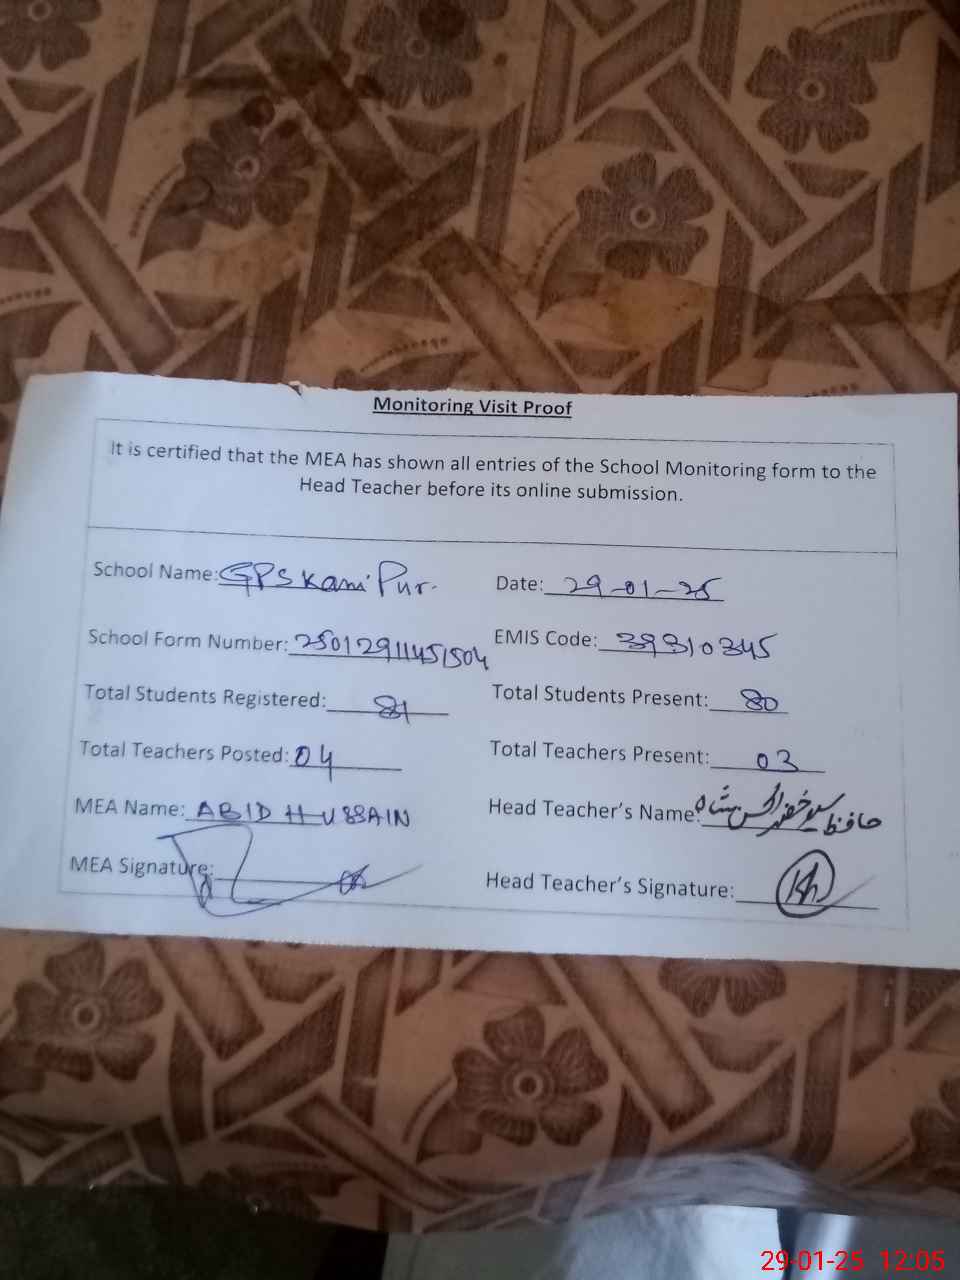 Monitoring Visit Proof
It is certified that the MEA has shown all entries of the School Monitoring form to the
Head Teacher before its online submission.
School Name: GPS Kami Pur. Date: 29-01-25
School Form Number: 25012911451504 EMIS Code: 39310345
Total Students Registered: 81 Total Students Present: 80
Total Teachers Posted: 04 Total Teachers Present: 03
MEA Name: ABID HUSSAIN Head Teacher's Name: حافظ سید خضر الحسن شاہ
MEA Signature: Head Teacher's Signature:
29-01-25 12:05